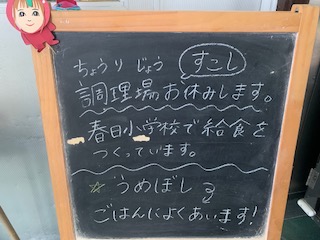 ちょうりじょう すこし
調理場お休みします。
春日小学校で給食を
つくっています。
☆うめぼし
ごはんによくあいます!